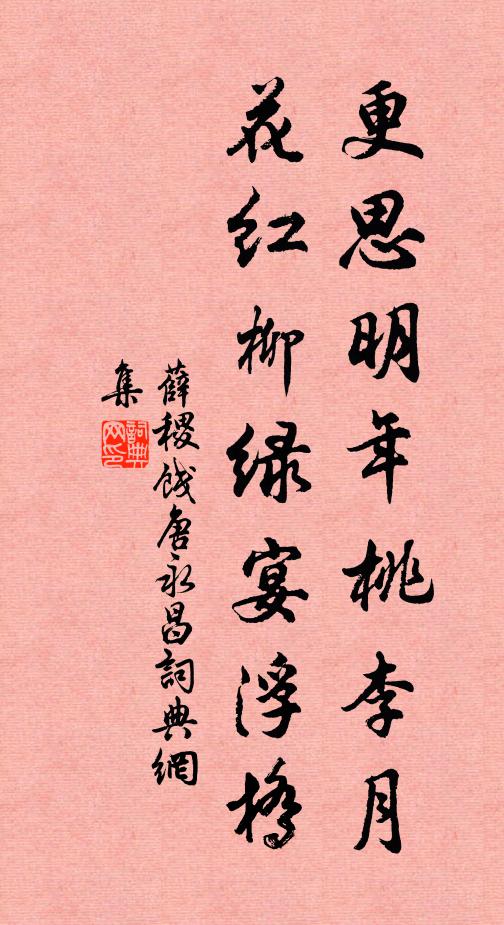 更思明年桃李月
花红柳绿宴浮桥
薛稷饯唐永昌詞典網
集
詞典网印